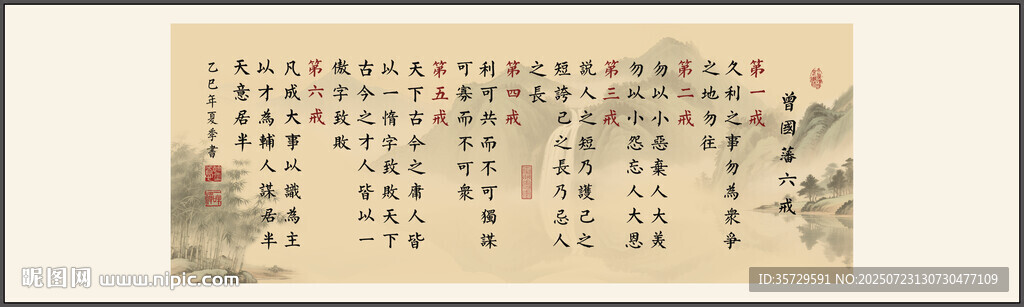 曾國藩六戒
第一戒
久利之事勿為衆爭
之地勿往
第二戒
勿以小惡棄人大美
勿以小怨忘人大恩
第三戒
説人之短乃護己之
短誇己之長乃忌人
之長
第四戒
利可共而不可獨謀
可寡而不可衆
第五戒
天下古今之庸人皆
以一惰字致敗天下
古今之才人皆以一
傲字致敗
第六戒
凡成大事以識為主
以才為輔人謀居半
天意居半
乙巳年夏季書
昵图网 www.nipic.com
ID:35729591 NO:20250723130730477109